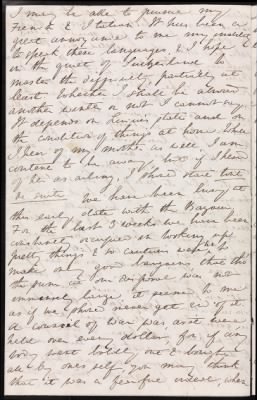 I may be able to pursue my
French & Italian. It has been a
great annoyance to me my inability
to speak these languages, & I hope
in the quiet of Switzerland to
master the difficulty, partially at
least. Whether I shall be abroad
another winter or not I cannot say.
It depends on Louisa's state and on
the condition of things at home. When
I hear of my mother as well I am
content to be away, but if I hear
of her as ailing, I should start tout
de suite. We have been busy at
this early date with the Bazaar,
For the last 3 weeks we have been
constantly occupied in looking up
pretty things, & so cautious were we to
make good bargains that tho'
the sum at our disposal was not
immensely large, it seemed to me
as if we should never get rid of it.
A council of war was
held over every dollar, for if any
body was bold enough & bought
all by one's self, you may think
that it was a fearful ordeal, when